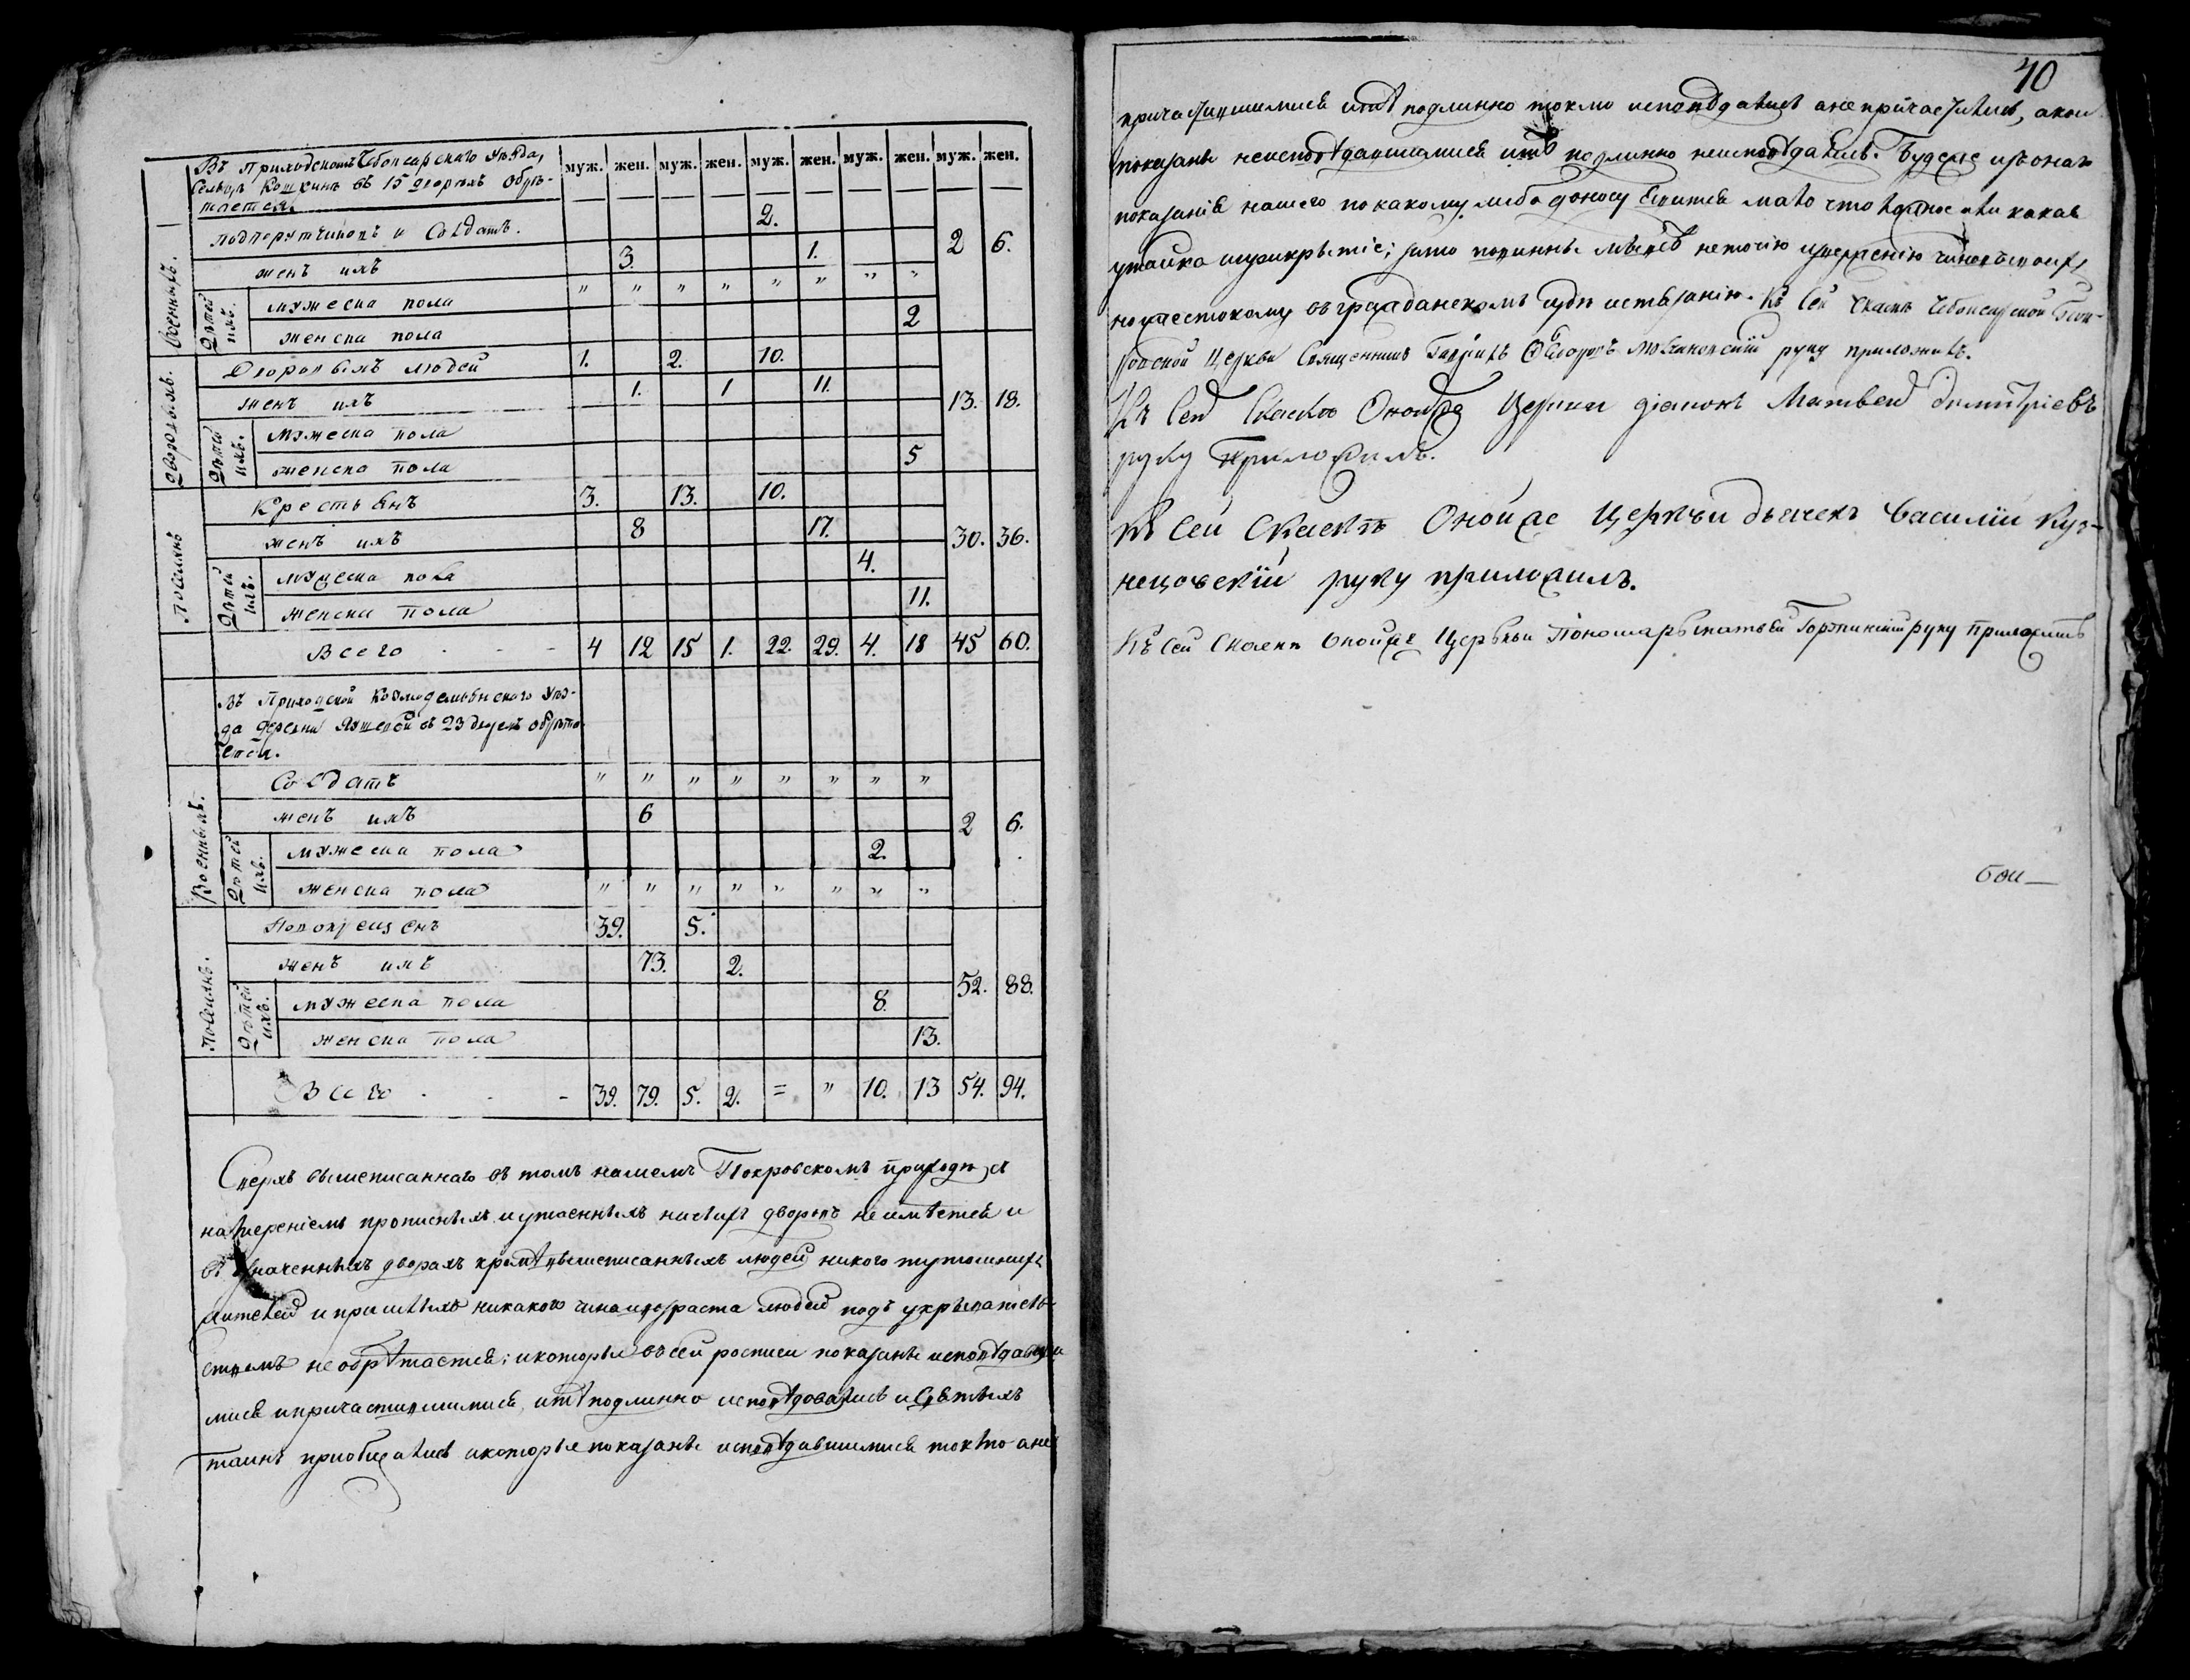 Въ Приходскомъ Чебоксарскаго Уѣзда, муж. жен. муж. жен. муж. жен. муж. жен. муж. жен.
Сельцѣ Кошкинѣ въ 15 дворахъ обрѣ-
тается.
Военныхъ.
Подпорутчиковъ и Солдатъ. 2. 2 6.
женъ ихъ 3. 1.
Дѣтей ихъ.
мужеска пола " " " " " " " "
женска пола 2
Дворовыхъ.
Дворовыхъ людей 1. 2. 10. 13. 18.
женъ ихъ 1. 1 11.
Дѣтей ихъ.
мужеска пола
женска пола 5
Поселянъ
Крестьянъ 3. 13. 10. 30. 36.
женъ ихъ 8 17.
Дѣтей ихъ.
мужеска пола 4.
женска пола 11.
Всего - 4 12 15 1. 22. 29. 4. 18 45 60.
Въ Приходской Козмодемьянскаго Уѣз-
да деревни въ 23 дворахъ обрѣта-
ется.
Военныхъ.
Солдатъ " " " " " " " "
женъ ихъ 6 2 6.
Дѣтей ихъ.
мужеска пола 2.
женска пола " " " " " " " "
Поселянъ.
Новокрещенъ 39. 5.
женъ ихъ 73. 2. 52. 88.
Дѣтей ихъ.
мужеска пола 8.
женска пола 13.
Всего - 39. 79. 5. 2. = " 10. 13 54. 94.
Сверхъ вышеписаннаго въ томъ нашемъ Покровскомъ приходѣ съ
намѣреніемъ прописныхъ и утаенныхъ никакихъ дворовъ неимѣется и
въ означенныхъ дворахъ кромѣ вышеписанныхъ людей никого тутошнихъ
жителей и пришлыхъ никакого чина и возраста людей подъ укрывательс-
ствомъ не обрѣтается; и которые въ сей росписи показаны исповѣдавши
мися и причастившимися, итѣ подлинно исповѣдовались и Святыхъ
таинъ приобщались а которые показаны исповѣдавшимися токмо а не
40
причастившимися итѣ подлинно токмо исповѣдались а не причастились, а кои
показаны неисповѣдавшимися итѣ подлинно неисповѣдались. Буде же изъ онаго
показанія нашего по какому либо доносу явится мало что ложное или какая
утайка и прикрытіе; зато повинны мы всѣ не точію изверженію чиновъ своихъ,
но и жестокому въ гражданскомъ судѣ истязанію. Къ сей Скаскѣ Чебоксарской Пок-
ровской Церкви Священникъ Гавріилъ Ѳедоровъ руку приложилъ.
Къ сей Скаскѣ Оной же Церкви діаконъ Матвей Димитріевъ
руку Приложилъ.
Къ сей Скаскѣ Оной же Церкви дьячекъ Василій Куз-
нецовскій руку приложилъ.
Къ сей Скаскѣ Оной же Церькви Пономарь руку приложилъ